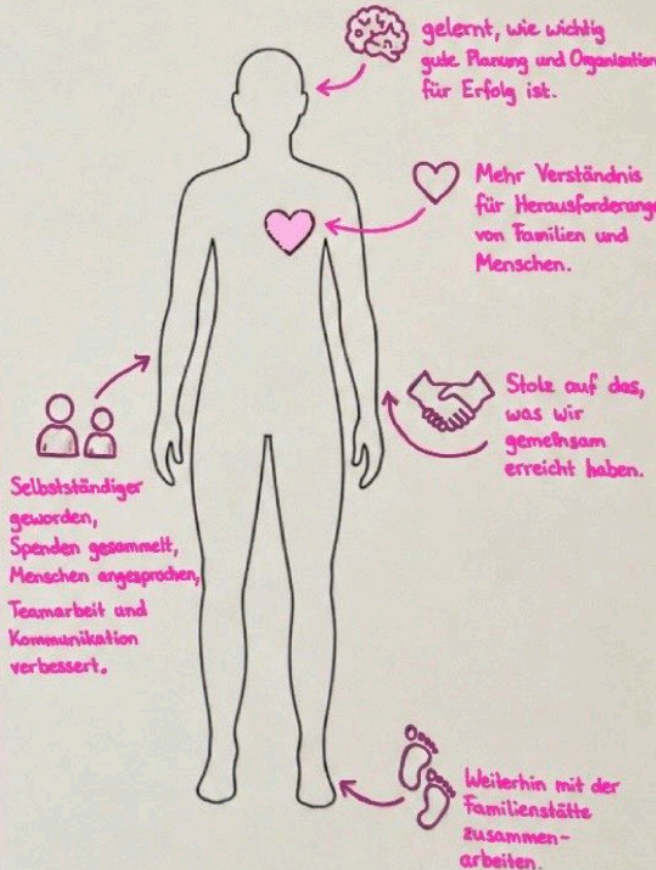 gelernt, wie wichtig
gute Planung und Organisation
für Erfolg ist.
Mehr Verständnis
für Herausforderunge
von Familien und
Menschen.
Stolz auf das,
was wir
gemeinsam
erreicht haben.
Selbstständiger
geworden,
Spenden gesammelt,
Menschen angesprochen,
Teamarbeit und
Kommunikation
verbessert.
Weiterhin mit der
Familienstätte
zusammen-
arbeiten.